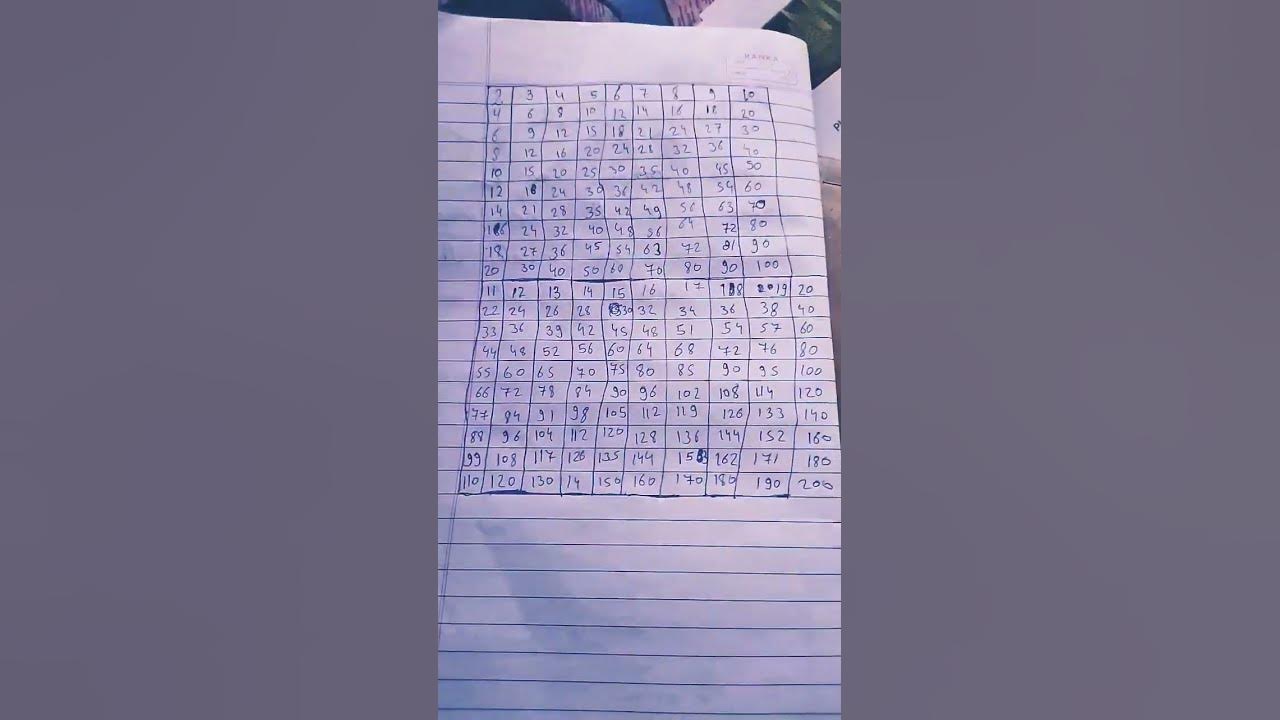 KANKA
2 3 4 5 6 7 8 9 10
4 6 8 10 12 14 16 18 20
6 9 12 15 18 21 24 27 30
8 12 16 20 24 28 32 36 40
10 15 20 25 30 35 40 45 50
12 18 24 30 36 42 48 54 60
14 21 28 35 42 49 56 63 70
16 24 32 40 48 56 64 72 80
18 27 36 45 54 63 72 81 90
20 30 40 50 60 70 80 90 100
11 12 13 14 15 16 17 18 19 20
22 24 26 28 30 32 34 36 38 40
33 36 39 42 45 48 51 54 57 60
44 48 52 56 60 64 68 72 76 80
55 60 65 70 75 80 85 90 95 100
66 72 78 84 90 96 102 108 114 120
77 84 91 98 105 112 119 126 133 140
88 96 104 112 120 128 136 144 152 160
99 108 117 126 135 144 153 162 171 180
110 120 130 14 150 160 170 180 190 200